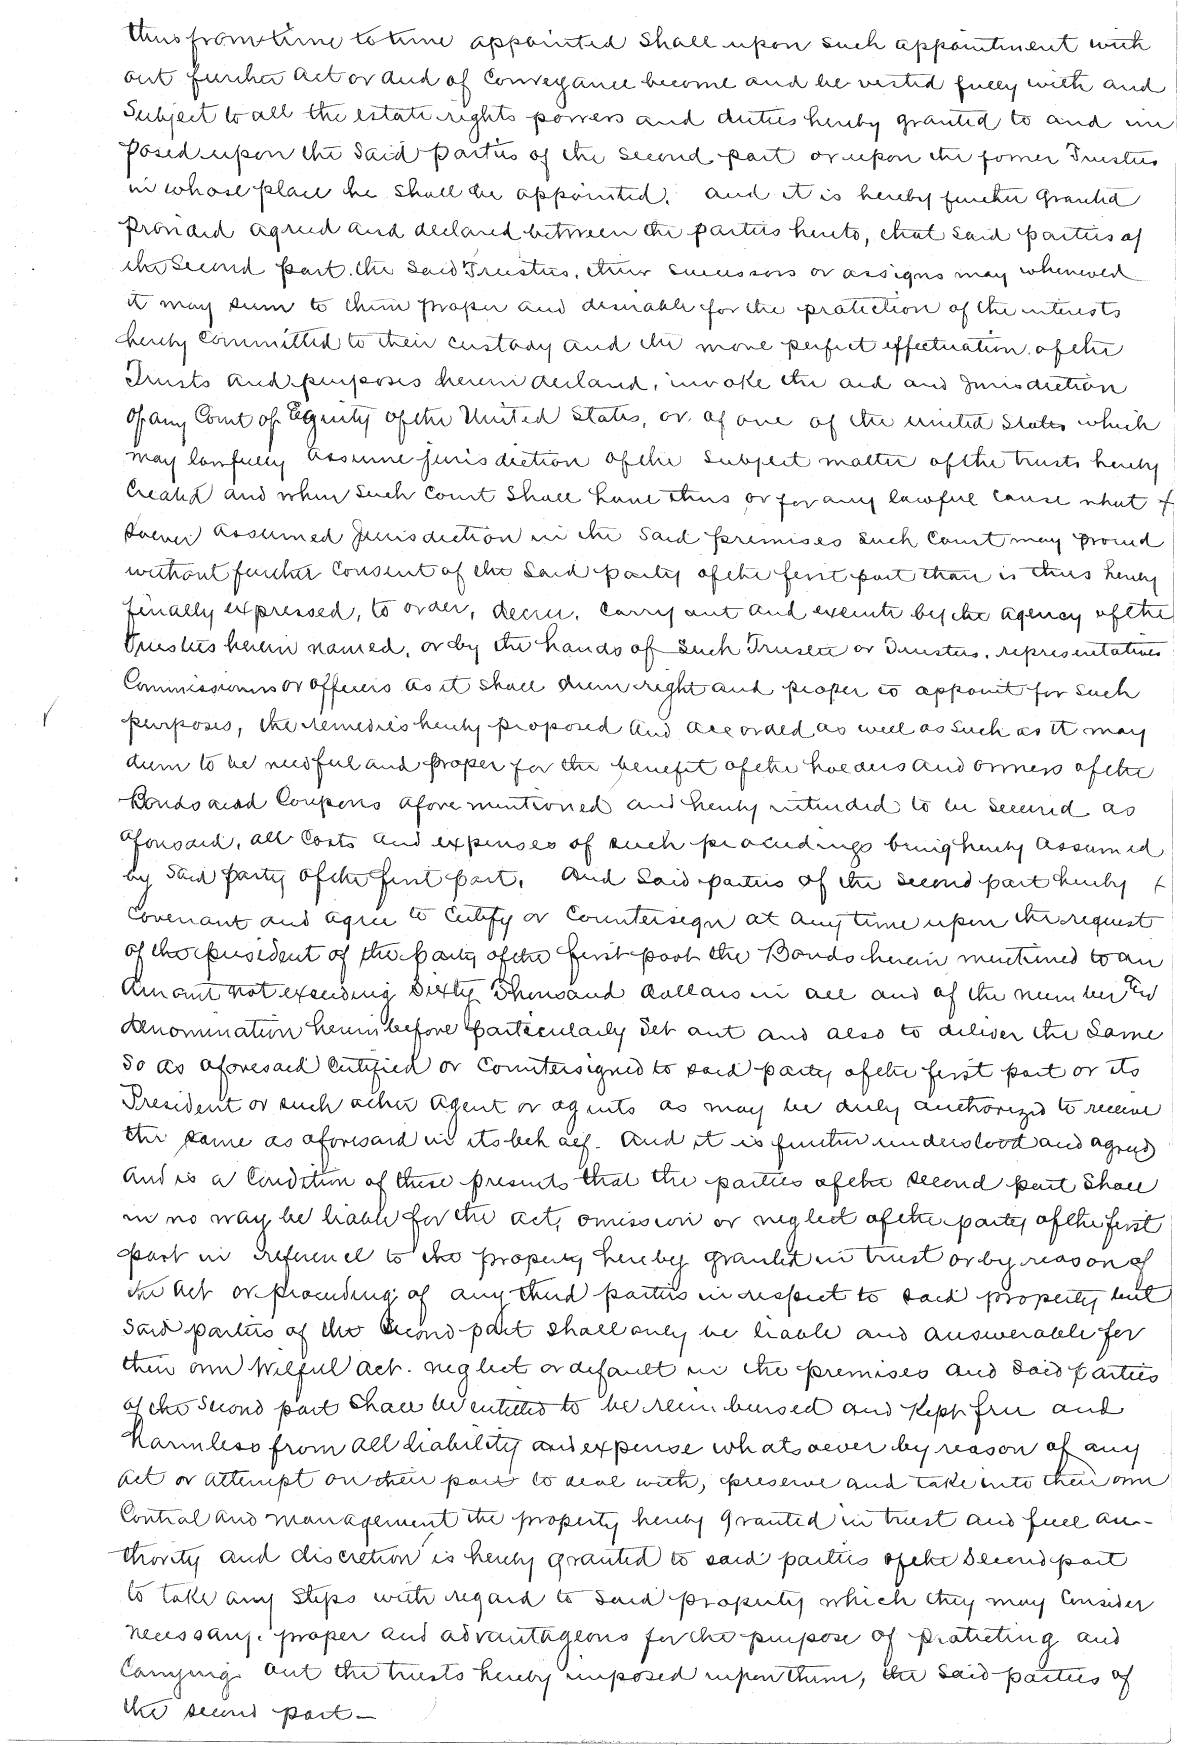 thus from time to time appointed shall upon such appointment with
out further act or deed of Conveyance become and be vested fully with and
Subject to all the estate rights powers and duties hereby granted to and im
posed upon the Said parties of the Second part or upon the former Trustee
in whose place he shall be appointed. And it is hereby further Granted
Provided agreed and declared between the parties hereto, that said parties of
the Second part the Said Trustees, their successors or assigns may whenever
it may seem to them proper and desirable for the protection of the interests
hereby Committed to their custody and the more perfect effectuation of the
Trusts and purposes herein declared, invoke the aid and Jurisdiction
of any Court of Equity of the United States, or of one of the United States which
may lawfully assume jurisdiction of the Subject matter of the trusts hereby
Created and when Such Court Shall have thus or for any lawful cause what
soever assumed Jurisdiction in the Said premises Such Court may proceed
without further Consent of the Said party of the first part than is thus hereby
finally expressed, to order, decree, carry out and execute by the agency of the
Trustees herein named, or by the hands of Such Trustee or Trustees, representatives
Commissioners or officers as it shall deem right and proper to appoint for such
purposes, the remedies hereby proposed and accorded as well as such as it may
deem to be needful and proper for the benefit of the holders and owners of the
Bonds and Coupons aforementioned and hereby intended to be secured as
aforesaid, all Costs and expenses of such proceedings being hereby assumed
by Said party of the first part. And Said parties of the Second part hereby
Covenant and agree to Certify or Countersign at any time upon the request
of the president of the party of the first part the Bonds herein mentioned to an
Amount not exceeding Sixty Thousand dollars in all and of the number and
denomination hereinbefore particularly Set out and also to deliver the Same
So as aforesaid Certified or Countersigned to said party of the first part or its
President or such other Agent or agents as may be duly authorized to receive
the same as aforesaid in its behalf. And it is further understood and agreed
And is a Condition of these presents that the parties of the second part Shall
in no way be liable for the act, omission or neglect of the party of the first
part in reference to the property hereby granted in trust or by reason of
the Act or proceeding of any third parties in respect to said property but
Said parties of the Second part shall only be liable and answerable for
their own Wilful Act, neglect or default in the premises and Said parties
of the Second part Shall be entitled to be reimbursed and Kept free and
Harmless from all liability and expense whatsoever by reason of any
act or attempt on their part to deal with, preserve and take into their own
Control and management the property hereby Granted in trust and full au-
thority and discretion is hereby granted to said parties of the Second part
to take any Steps with regard to Said property which they may Consider
necessary, proper and advantageous for the purpose of protecting and
Carrying out the trusts hereby imposed upon them, the Said parties of
the second part—